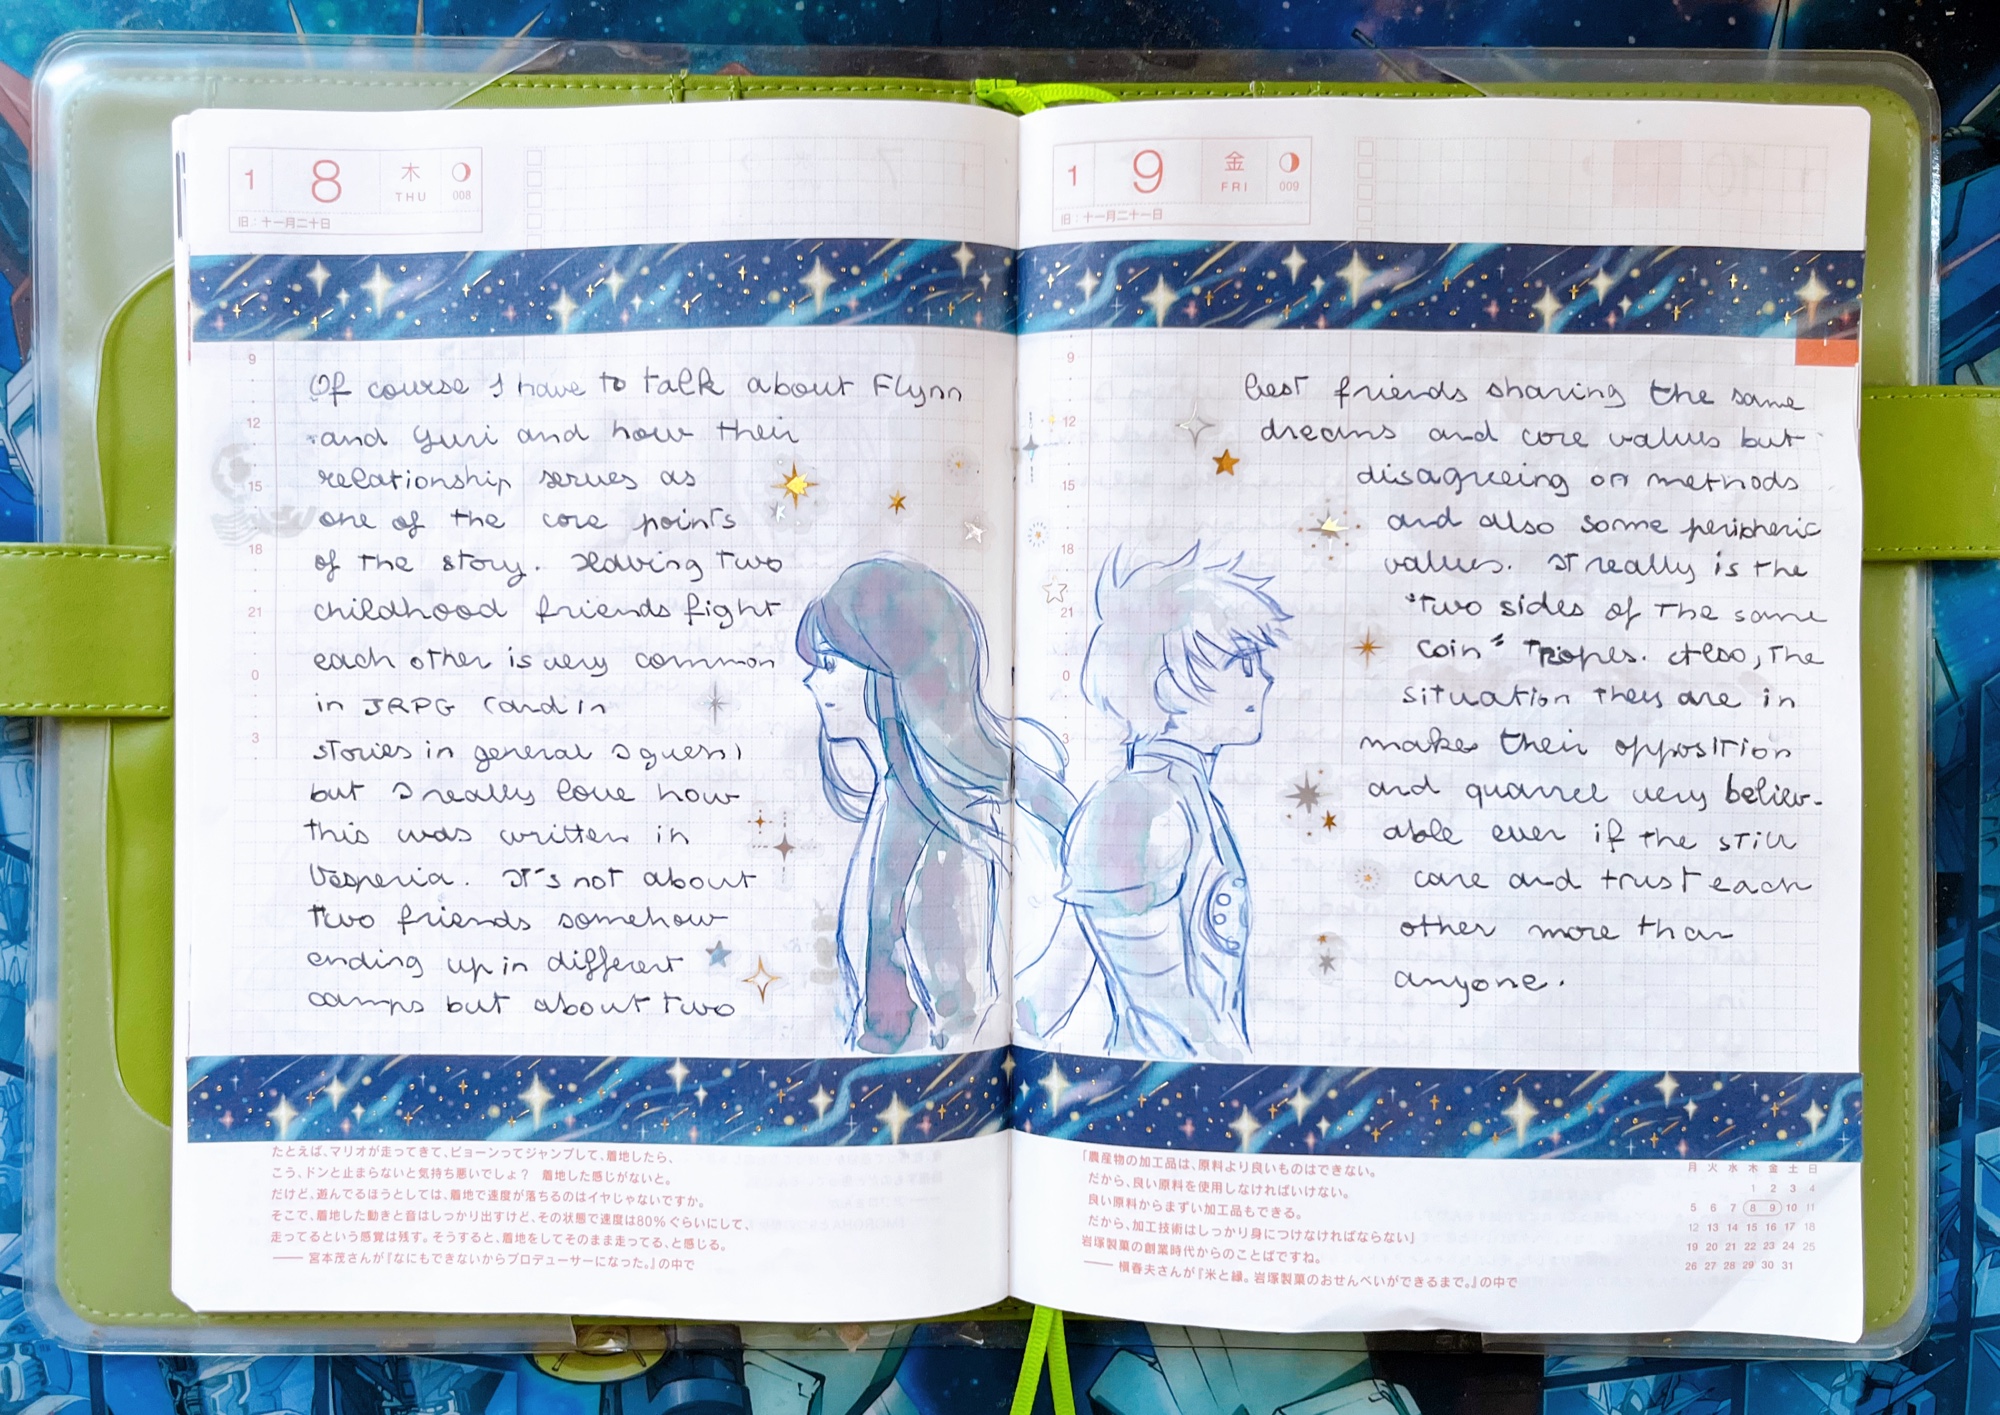 1 8 木 THU 008
旧：十一月二十日
9
12
15
18
21
0
3
Of course I have to talk about Flynn
and Yuri and how their
relationship serves as
one of the core points
of the story. Having two
childhood friends fight
each other is very common
in JRPG (and in
stories in general I guess)
but I really love how
this was written in
Vesperia. It's not about
two friends somehow
ending up in different
camps but about two
たとえば、マリオが走ってきて、ピョーンってジャンプして、着地したら、
こう、ドンと止まらないと気持ち悪いでしょ？　着地した感じがないと。
だけど、遊んでるほうとしては、着地で速度が落ちるのはイヤじゃないですか。
そこで、着地した動きと音はしっかり出すけど、その状態で速度は80％ぐらいにして、
走ってるという感覚は残す。そうすると、着地をしてそのまま走ってる、と感じる。
—— 宮本茂さんが『なにもできないからプロデューサーになった。』の中で
1 9 金 FRI 009
旧：十一月二十一日
9
12
15
18
21
0
3
best friends sharing the same
dreams and core values but
disagreeing on methods
and also some peripheric
values. It really is the
"two sides of the same
coin" tropes. Also, the
situation they are in
makes their opposition
and quarrel very believ-
able even if the still
care and trust each
other more than
anyone.
「農産物の加工品は、原料より良いものはできない。
だから、良い原料を使用しなければいけない。
良い原料からまずい加工品もできる。
だから、加工技術はしっかり身につけなければならない」
岩塚製菓の創業時代からのことばですね。
—— 槇春夫さんが『米と縁。岩塚製菓のおせんべいができるまで。』の中で
月 火 水 木 金 土 日
1 2 3 4
5 6 7 8 9 10 11
12 13 14 15 16 17 18
19 20 21 22 23 24 25
26 27 28 29 30 31